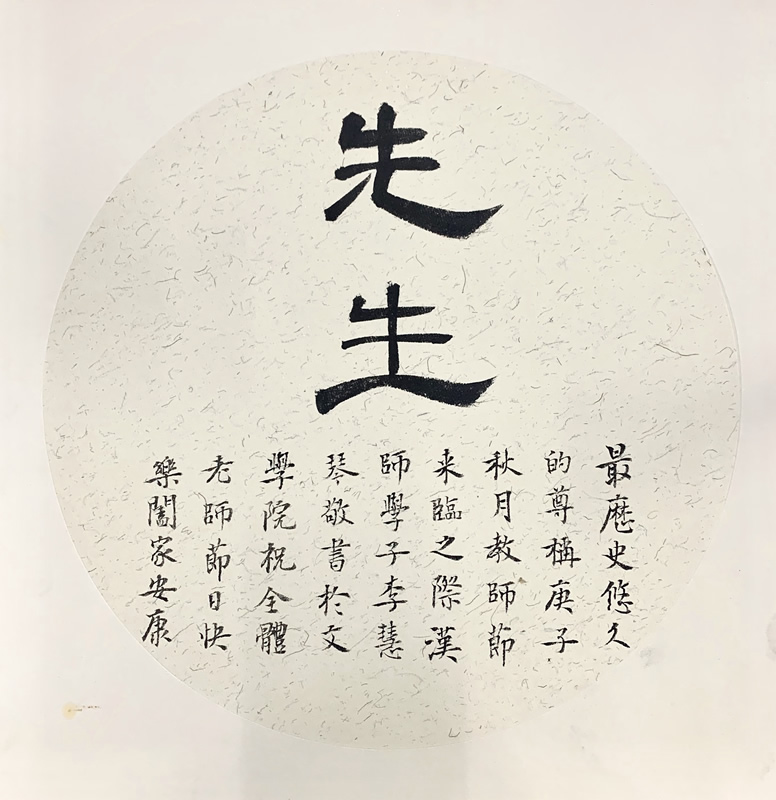 先生
最歷史悠久
的尊稱庚子
秋月教師節
来臨之際漢
師學子李慧
琴敬書於文
學院祝全體
老師節日快
樂闔家安康